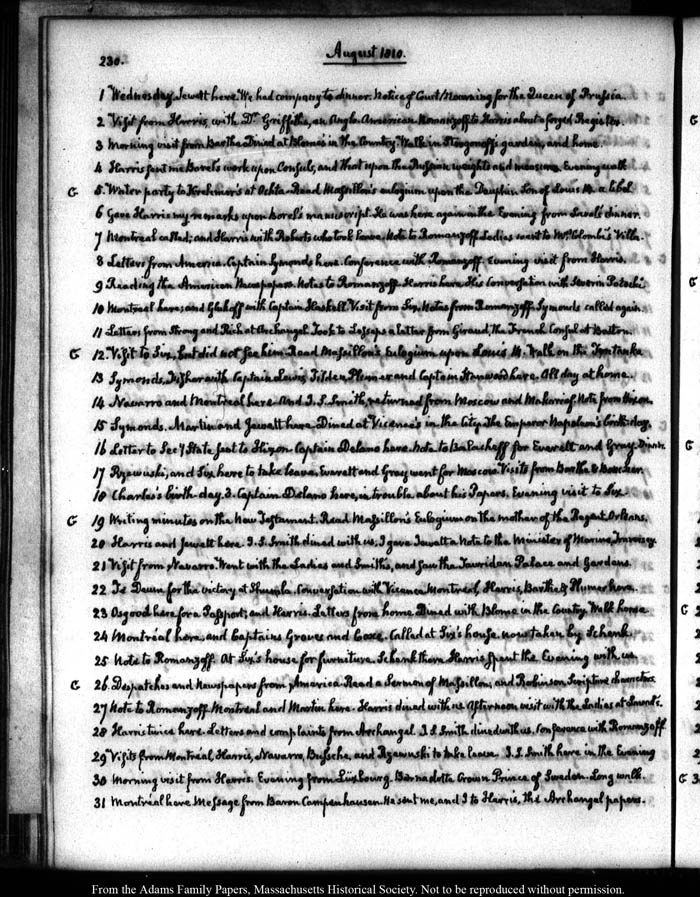 230.
August 1810.
1 Wednesday. Jewett here. We had company to dinner. Notice of Court Mourning for the Queen of Prussia.
2 Visit from Harris, with Dr. Griffiths, an Anglo American. Romanzoff to Harris about a forged Register.
3 Morning visit from Barthe. Dined at Blome's in the Country. Walk in Strogonoff's garden, and home.
4 Harris sent me Borel's work upon Consuls, and that upon the Russian weights and measures. Evening walk
G 5. Water party to Krehmer's at Ochta. Read Massillon's eulogium upon the Dauphin Son of Louis 14. a libel
6 Gave Harris my remarks upon Borel's manuscript. He was here again in the Evening from dinner.
7 Montreal called; and Harris with Roberts who took leave. Note to Romanzoff. Ladies went to Mrs. Colombi's Villa.
8 Letters from America. Captain Symonds here. Conference with Romanzoff. Evening visit from Harris.
9 Reading the American Newspapers. Notes to Romanzoff. Harris here. His Conversation with Severin Potocki.
10 Montreal here; and with Captain Haskell. Visit from Six. Notes from Romanzoff. Symonds called again.
11 Letters from Strong and Rich at Archangel. Took to Lesseps a letter from Giraud, the French Consul at Boston.
G 12. Visit to Six, but did not see him. Read Massillon's Eulogium upon Louis 14. Walk on the Fontanka
13 Symonds, Fisher with Captain Lewis, Tilden, Plummer and Captain Stanwood here. All day at home.
14 Navarro and Montreal here. And J. S. Smith, returned from Moscow and Makarief. Note from Hixon.
15 Symonds. Martin and Jewett here. Dined at Vicence's in the City. The Emperor Napoleon's birth-day.
16 Letter to Secy. State sent to Hixon. Captain Delano here. Note to Balacheff for Everett and Gray. Dinner.
17 Rzewuski, and Six here to take leave. Everett and Gray went for Moscow. Visits from Barthe &
18 Charles's birth-day. 3. Captain Delano here, in trouble about his Papers. Evening visit to Six.
G 19 Writing minutes on the New Testament. Read Massillon's Eulogium on the mother of the Regent Orleans.
20 Harris and Jewett here. J. S. Smith dined with us. I gave Jewett a Note to the Minister of Marine,
21 Visit from Navarro. Went with the Ladies and Smiths, and saw the Tauridan Palace and Gardens.
22 Te Deum for the victory at Shumla. Conversation with Vicence. Montreal, Harris, Barthe & Plumer here.
23 Osgood here for a Passport; and Harris. Letters from home. Dined with Blome in the Country. Walk home
24 Montréal here, and Captains Graves and Coxe. Called at Six's house now taken by Schenk.
25 Note to Romanzoff. At Six's house for furniture. Schenk there. Harris spent the Evening with us.
G 26. Despatches and Newspapers from America. Read a Sermon of Massillon, and Robinson Scripture Characters
27 Note to Romanzoff. Montreal and Martin here. Harris dined with us. Afternoon visit with the Ladies at
28 Harris twice here. Letters and complaints from Archangel. J. S. Smith dined with us. Conference with Romanzoff
29 Visits from Montréal, Harris, Navarro, Bussche, and Rzewuski to take leave. J. S. Smith here in the Evening
30 Morning visit from Harris. Evening from Luxbourg. Bernadotte Crown Prince of Sweden. Long walk.
31 Montréal here. Message from Baron Campenhausen. He sent me, and I to Harris, the Archangel papers.
From the Adams Family Papers, Massachusetts Historical Society. Not to be reproduced without permission.